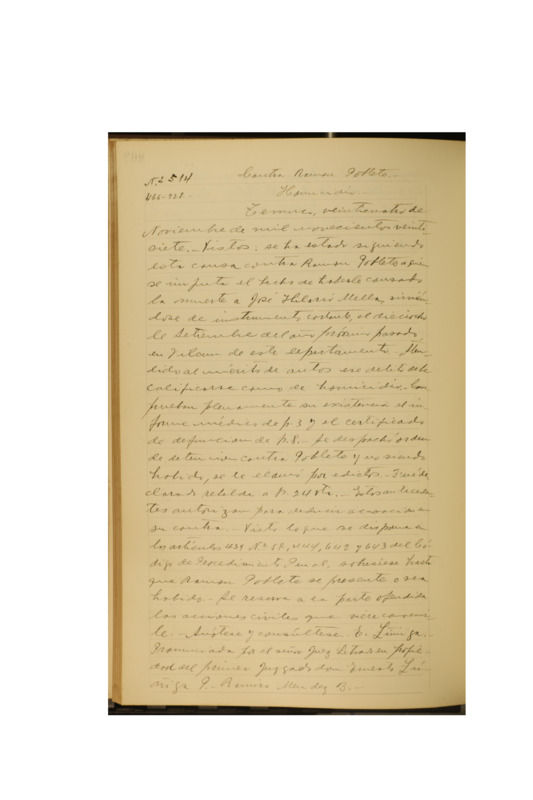 Nº 2514 Contra Ramon Poblete.
Homicidio.
Temuco, veinticuatro de
Noviembre de mil novecientos veinti
siete.- Vistos: se ha estado siguiendo
esta causa contra Ramon Poblete a quien
se imputa el hecho de haberle causado
la muerte a José Hilario Mella, sirvién
dose de instrumento cortante, el dieciocho
de Setiembre del año próximo pasado
en de este departamento.
al mérito de autos ese delito debe
calificarse como de homicidio. Com
prueban plenamente su existencia el in
forme médico de p. 3 y el certificado
de defuncion de p. 8. Se despachó orden
de detencion contra Poblete y no siendo
habido, se le llamó por edictos.- Fué de
clarado rebelde a p. 24 vta.- Estos antece
tes autorizan para deducir acusacion en
su contra.- Visto lo que se dispone en
los artículos 439 Nº 5º, 444, 642 y 643 del Có
digo de Procedimiento Penal, sobresese hasta
que Ramon Poblete se presente o sea
habido.- Se reserva a la parte ofendida
las acciones civiles que viere convenir
le.- Anótese y consúltese. E. Zúñiga.
Pronunciada por el señor Juez Letrado en propie
dad del primer Juzgado don Ernesto Zú
ñiga P. Ramiro Mendez B.-